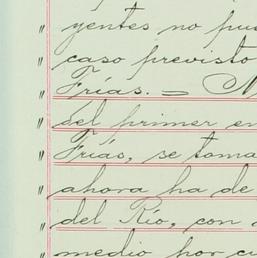 yentes no pu
" caso previsto
" Frías. =
" del primer en
" Frías, se toma
" ahora ha de
" del Río, con
" medio por cu